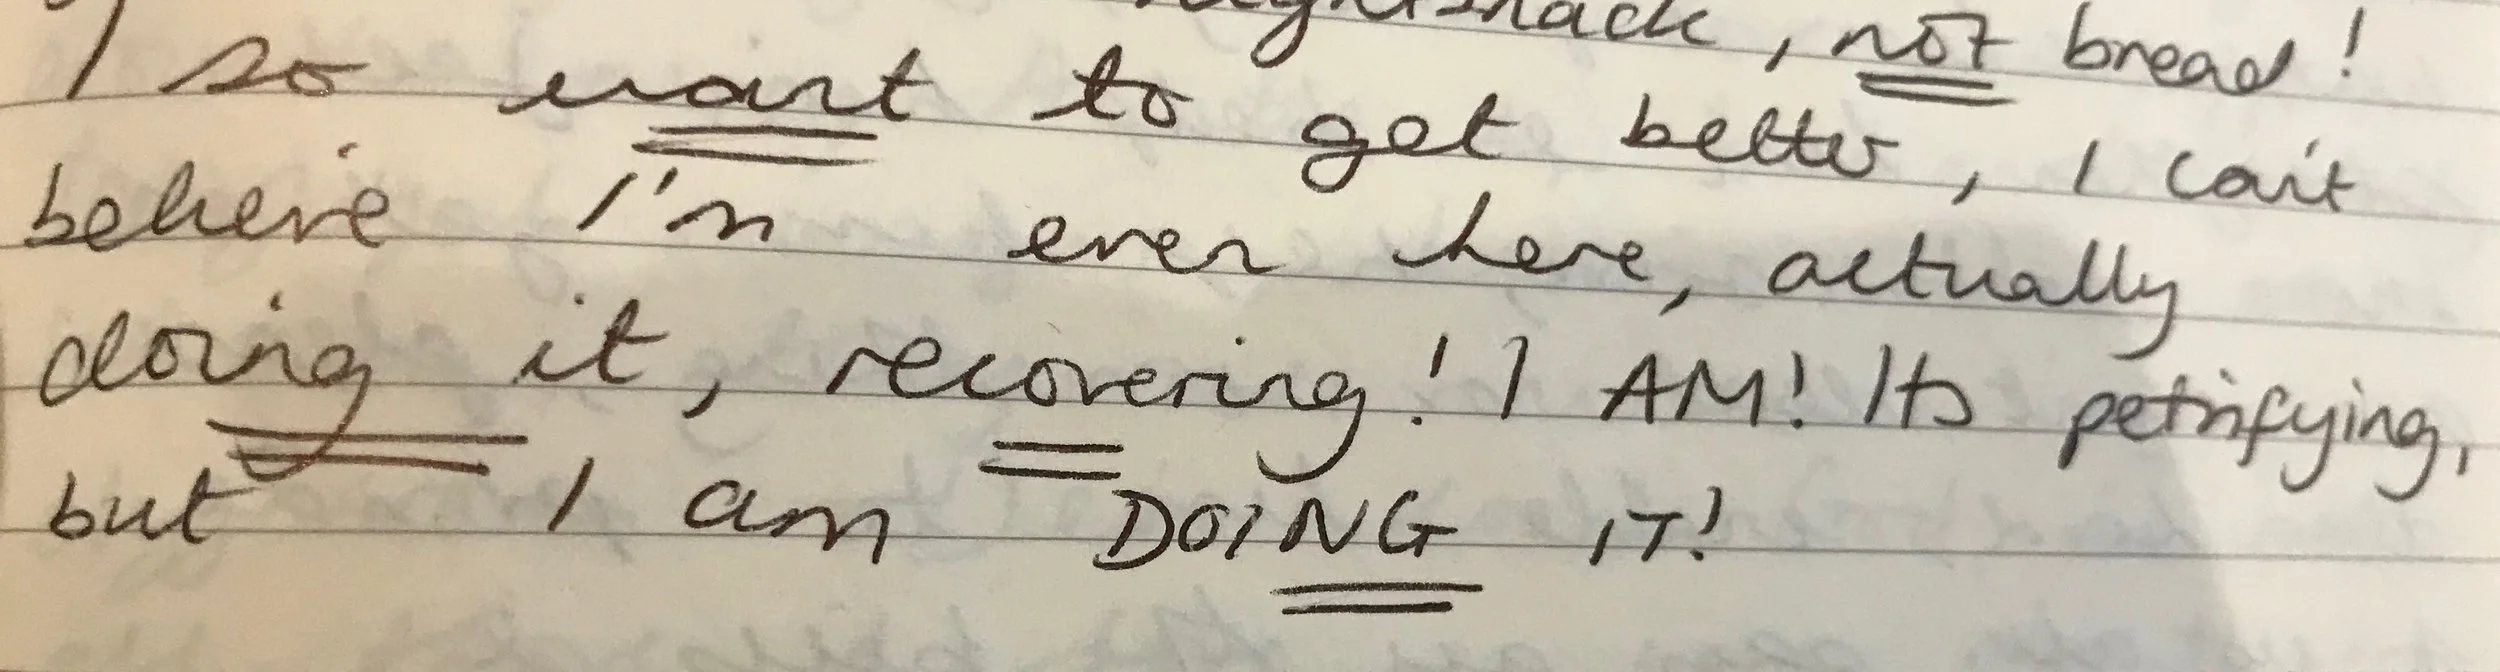 snack, not bread!
I so want to get better, I can't
believe I'm even here, actually
doing it, recovering! I AM! Its petrifying,
but I am DOING IT!